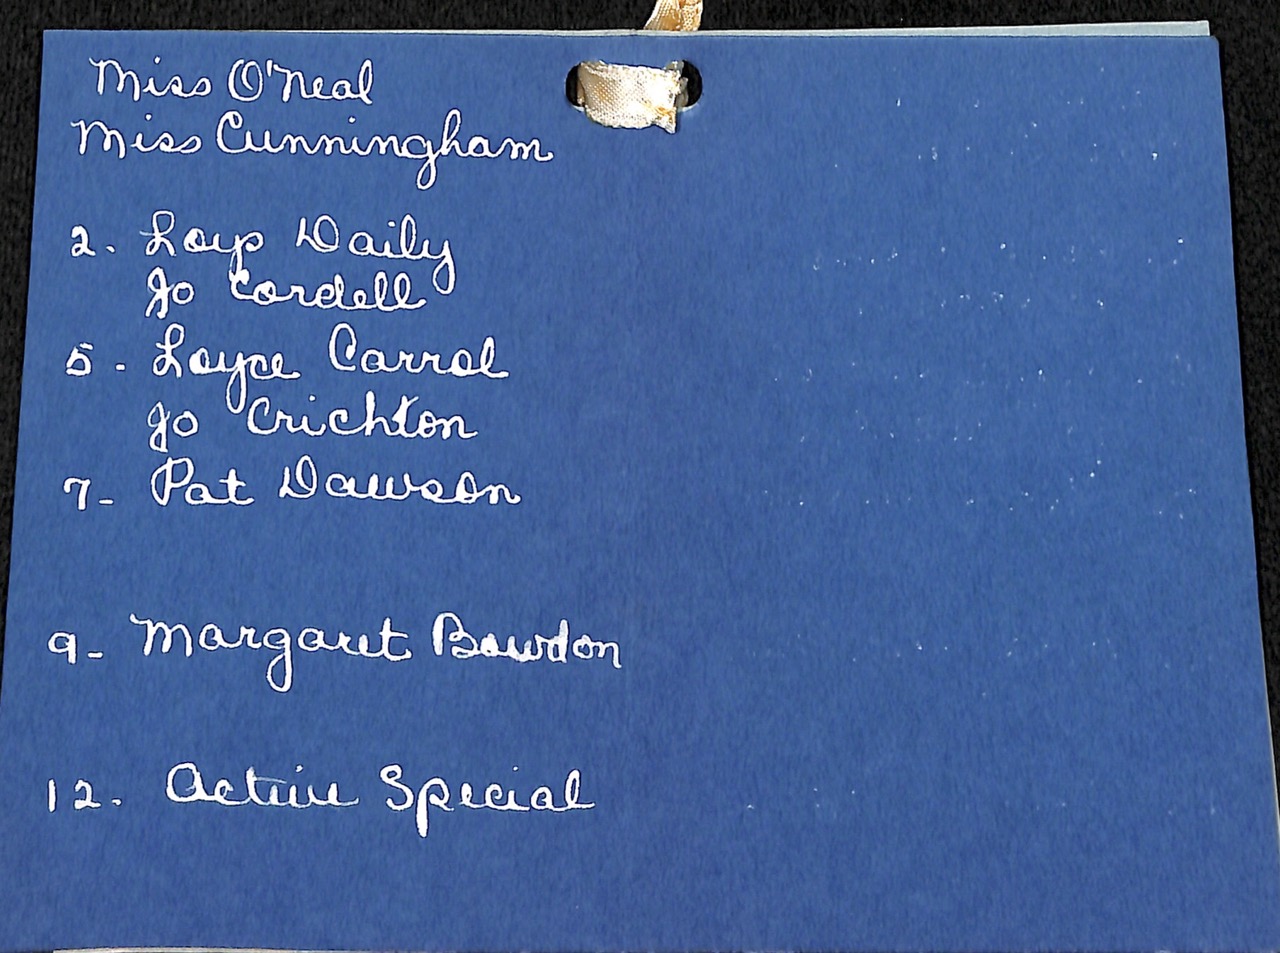 Miss O'Neal
Miss Cunningham
2. Loyp Daily
Jo Cordell
5. Loyce Carrol
Jo Crichton
7- Pat Dawson
9- Margaret Bowdon
12. Active Special